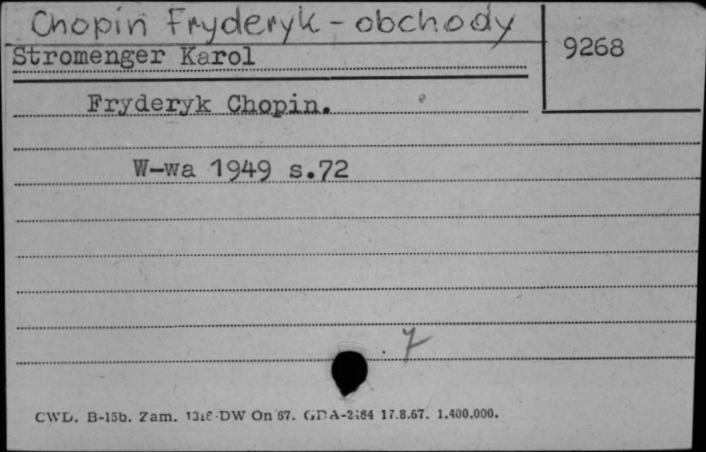 Chopin Fryderyk - obchody
9268
Stromenger Karol
Fryderyk Chopin.
W-wa 1949 s.72
7
CWD. B-15b. Zam. DW On 67. 17.8.67. 1.400.000.